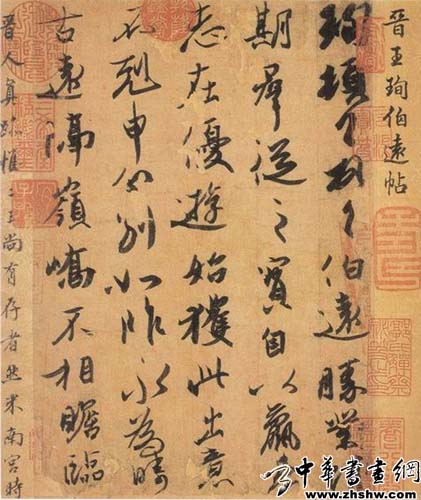 晋王珣伯遠帖
珣頓首頓首伯遠勝業情
期群從之寶自以羸患
志在優遊始獲此出意
不剋申分别如昨永為疇
古遠隔嶺嶠不相瞻臨
晋人真跡惟二王尚有存者然米南宮時
中華書畫網
www.zhshw.com